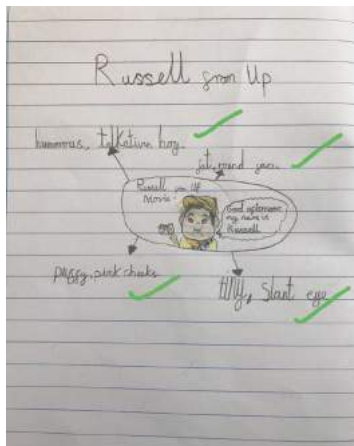 Russell from Up
humorous, talkative boy.
fat, round face.
Russell from UP
Movie.
Good afternoon
my name is
Russell
puffy, pink cheeks
tiny, slant eye